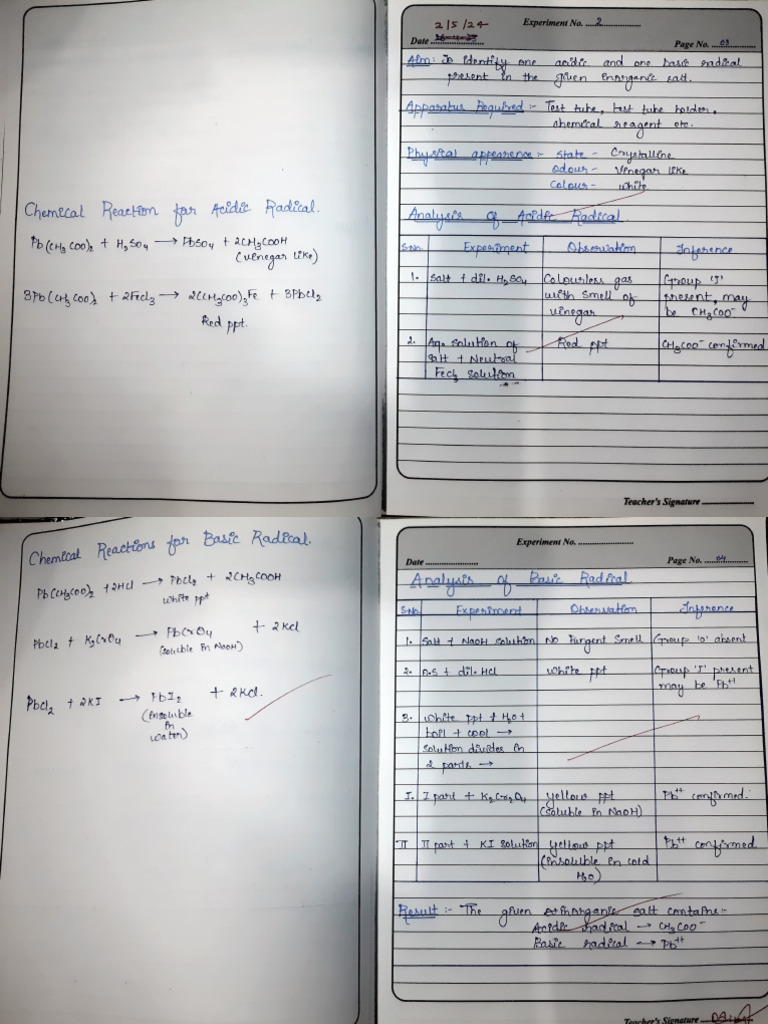 Chemical Reaction for Acidic Radical.
Pb(CH₃COO)₂ + H₂SO₄ → PbSO₄ + 2CH₃COOH
(vinegar like)
3Pb(CH₃COO)₂ + 2FeCl₃ → 2(CH₃COO)₃Fe + 3PbCl₂
Red ppt.
2/5/24
Experiment No. 2
Date
Page No. 03
Aim:- To identify one acidic and one basic radical
present in the given inorganic salt.
Apparatus Required:- Test tube, test tube holder,
chemical reagent etc.
Physical appearence:- State - Crystalline
Odour - Vinegar like
Colour - white
Analysis of Acidic Radical
S.No. Experiment Observation Inference
1. Salt + dil. H₂SO₄ Colourless gas Group 'I'
with smell of present, may
vinegar be CH₃COO⁻
2. Aq. solution of Red ppt CH₃COO⁻ confirmed
salt + Neutral
FeCl₃ solution
Teacher's Signature
Chemical Reactions for Basic Radical.
Pb(CH₃COO)₂ + 2HCl → PbCl₂ + 2CH₃COOH
white ppt
PbCl₂ + K₂CrO₄ → PbCrO₄ + 2KCl
(soluble in NaOH)
PbCl₂ + 2KI → PbI₂ + 2KCl.
(insoluble
in
water)
Experiment No.
Date
Page No. 04
Analysis of Basic Radical
S.No. Experiment Observation Inference
1. Salt + NaOH solution No Pungent Smell Group 'O' absent
2. O.S + dil. HCl white ppt Group 'I' present
may be Pb⁺⁺
3. white ppt + H₂O +
boil + cool →
solution divides in
2 parts →
I. I part + K₂Cr₂O₄ yellow ppt Pb⁺⁺ confirmed.
(soluble in NaOH)
II II part + KI solution yellow ppt Pb⁺⁺ confirmed
(insoluble in cold
H₂O)
Result:- The given inorganic salt contains:-
Acidic radical → CH₃COO⁻
Basic radical → Pb⁺⁺
Teacher's Signature